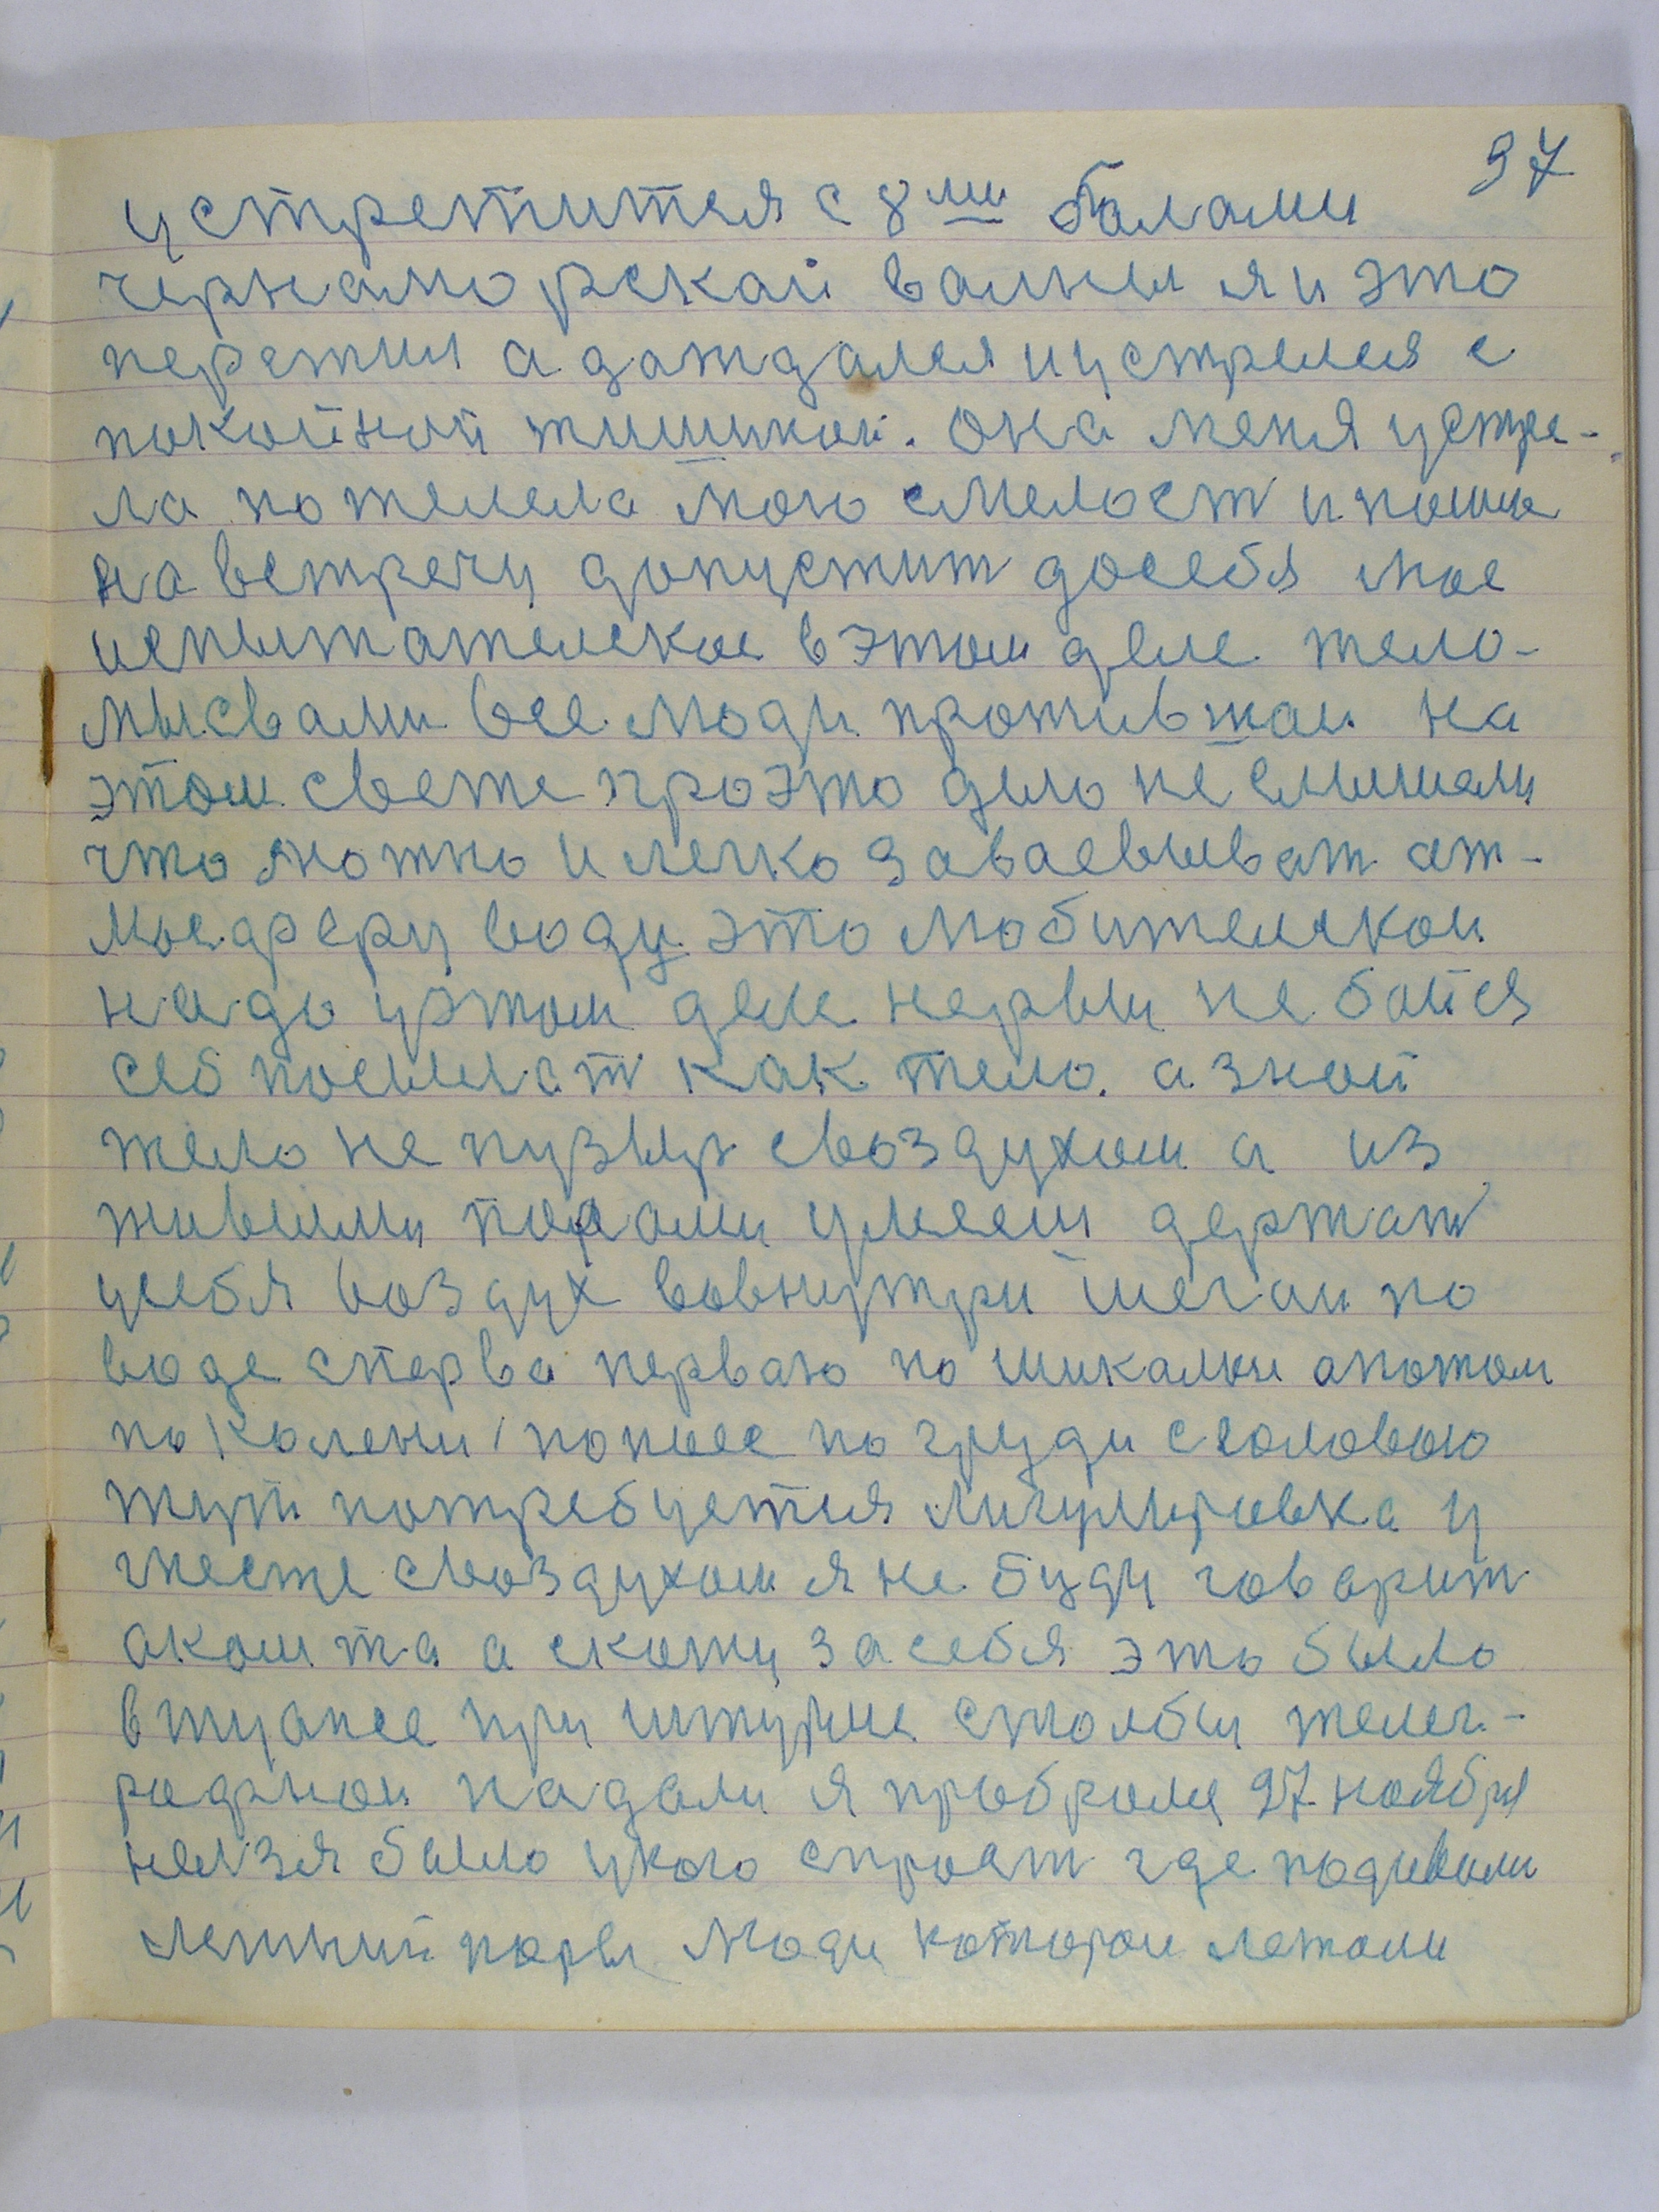 97
устретится с 8ми балами
чернаморскай валны я и это
пережил а дождался и устрелся с
покойной тишиной. Она меня устре-
ла пожелела мою смелост и пошла
на встречу допустит досебя мое
испытателское в этом деле тело-
мысвами все люди против жал на
этом свете проэто дело не слышали
что можно и легко заваевыват ат-
мосферу воду это любителякои
надо уэтом деле нервы не боися
себ посылат как тело. а зной
тело не пузыр своздухом а из
живыми порами умееш держат
усебя воздух вовнутри шегаи по
воде сперва перваю по шикалки апотом
по колени попоес по груди сголовою
тут потребуется лигулировка у
месте своздухом я не буду говорит
аком та а скожу засебя это было
втуапсе при штурме столбы телег-
рафнои падали я пробрался 27 ноября
нелзя было укого спросит где подивали
летний поры люди которои лежали